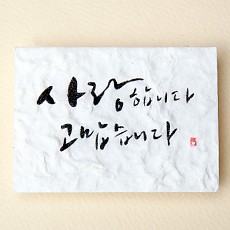 사랑합니다
고맙습니다